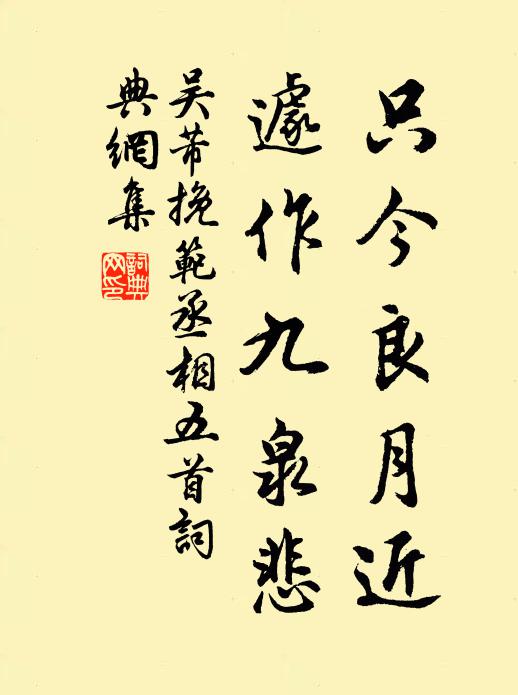 只今良月近
遽作九泉悲
吳芾挽範丞相五首詞
典網集
詞典
网印